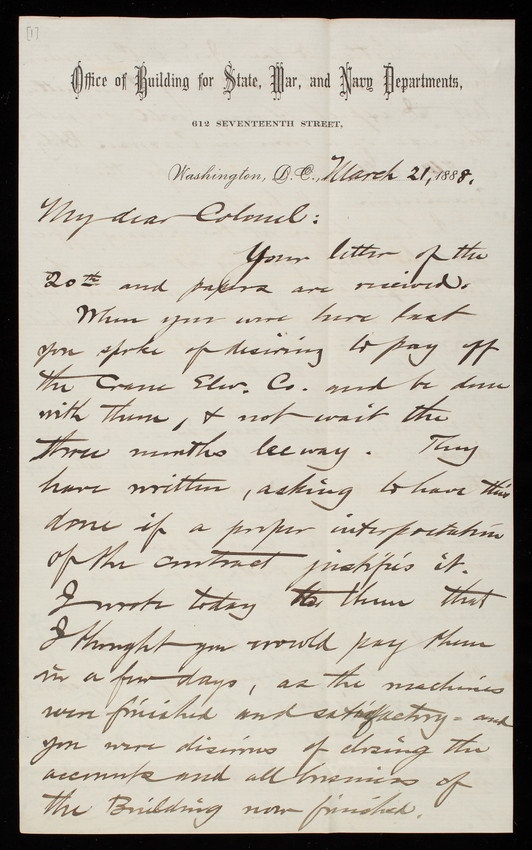 [1]
Office of Building for State, War, and Navy Departments,
612 SEVENTEENTH STREET,
Washington, D.C., March 21, 1888.
My dear Colonel:
Your letter of the
20th and papers are received.
When you were here last
you spoke of desiring to pay off
the Crane Elev. Co. and be done
with them, & not wait the
three months leeway. They
have written, asking to have this
done if a proper interpretation
of the contract justifies it.
I wrote today to them that
I thought you would pay them
in a few days, as the machines
were finished and satisfactory - and
you were desirous of closing the
accounts and all business of
the Building now finished.